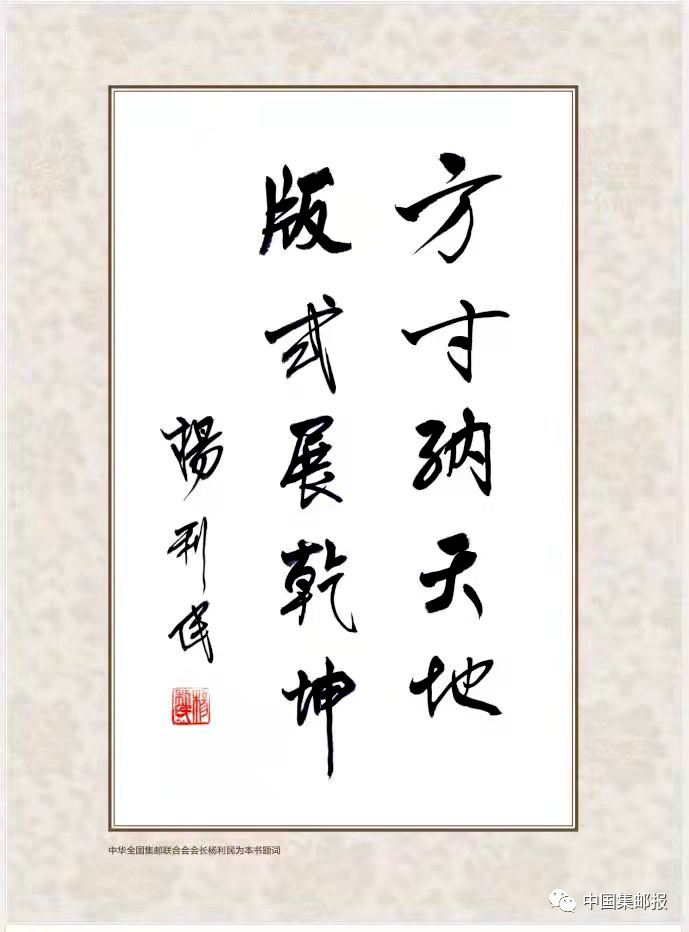 方寸纳天地
版式展乾坤
楊利民
中华全国集邮联合会会长杨利民为本书题词
中国集邮报